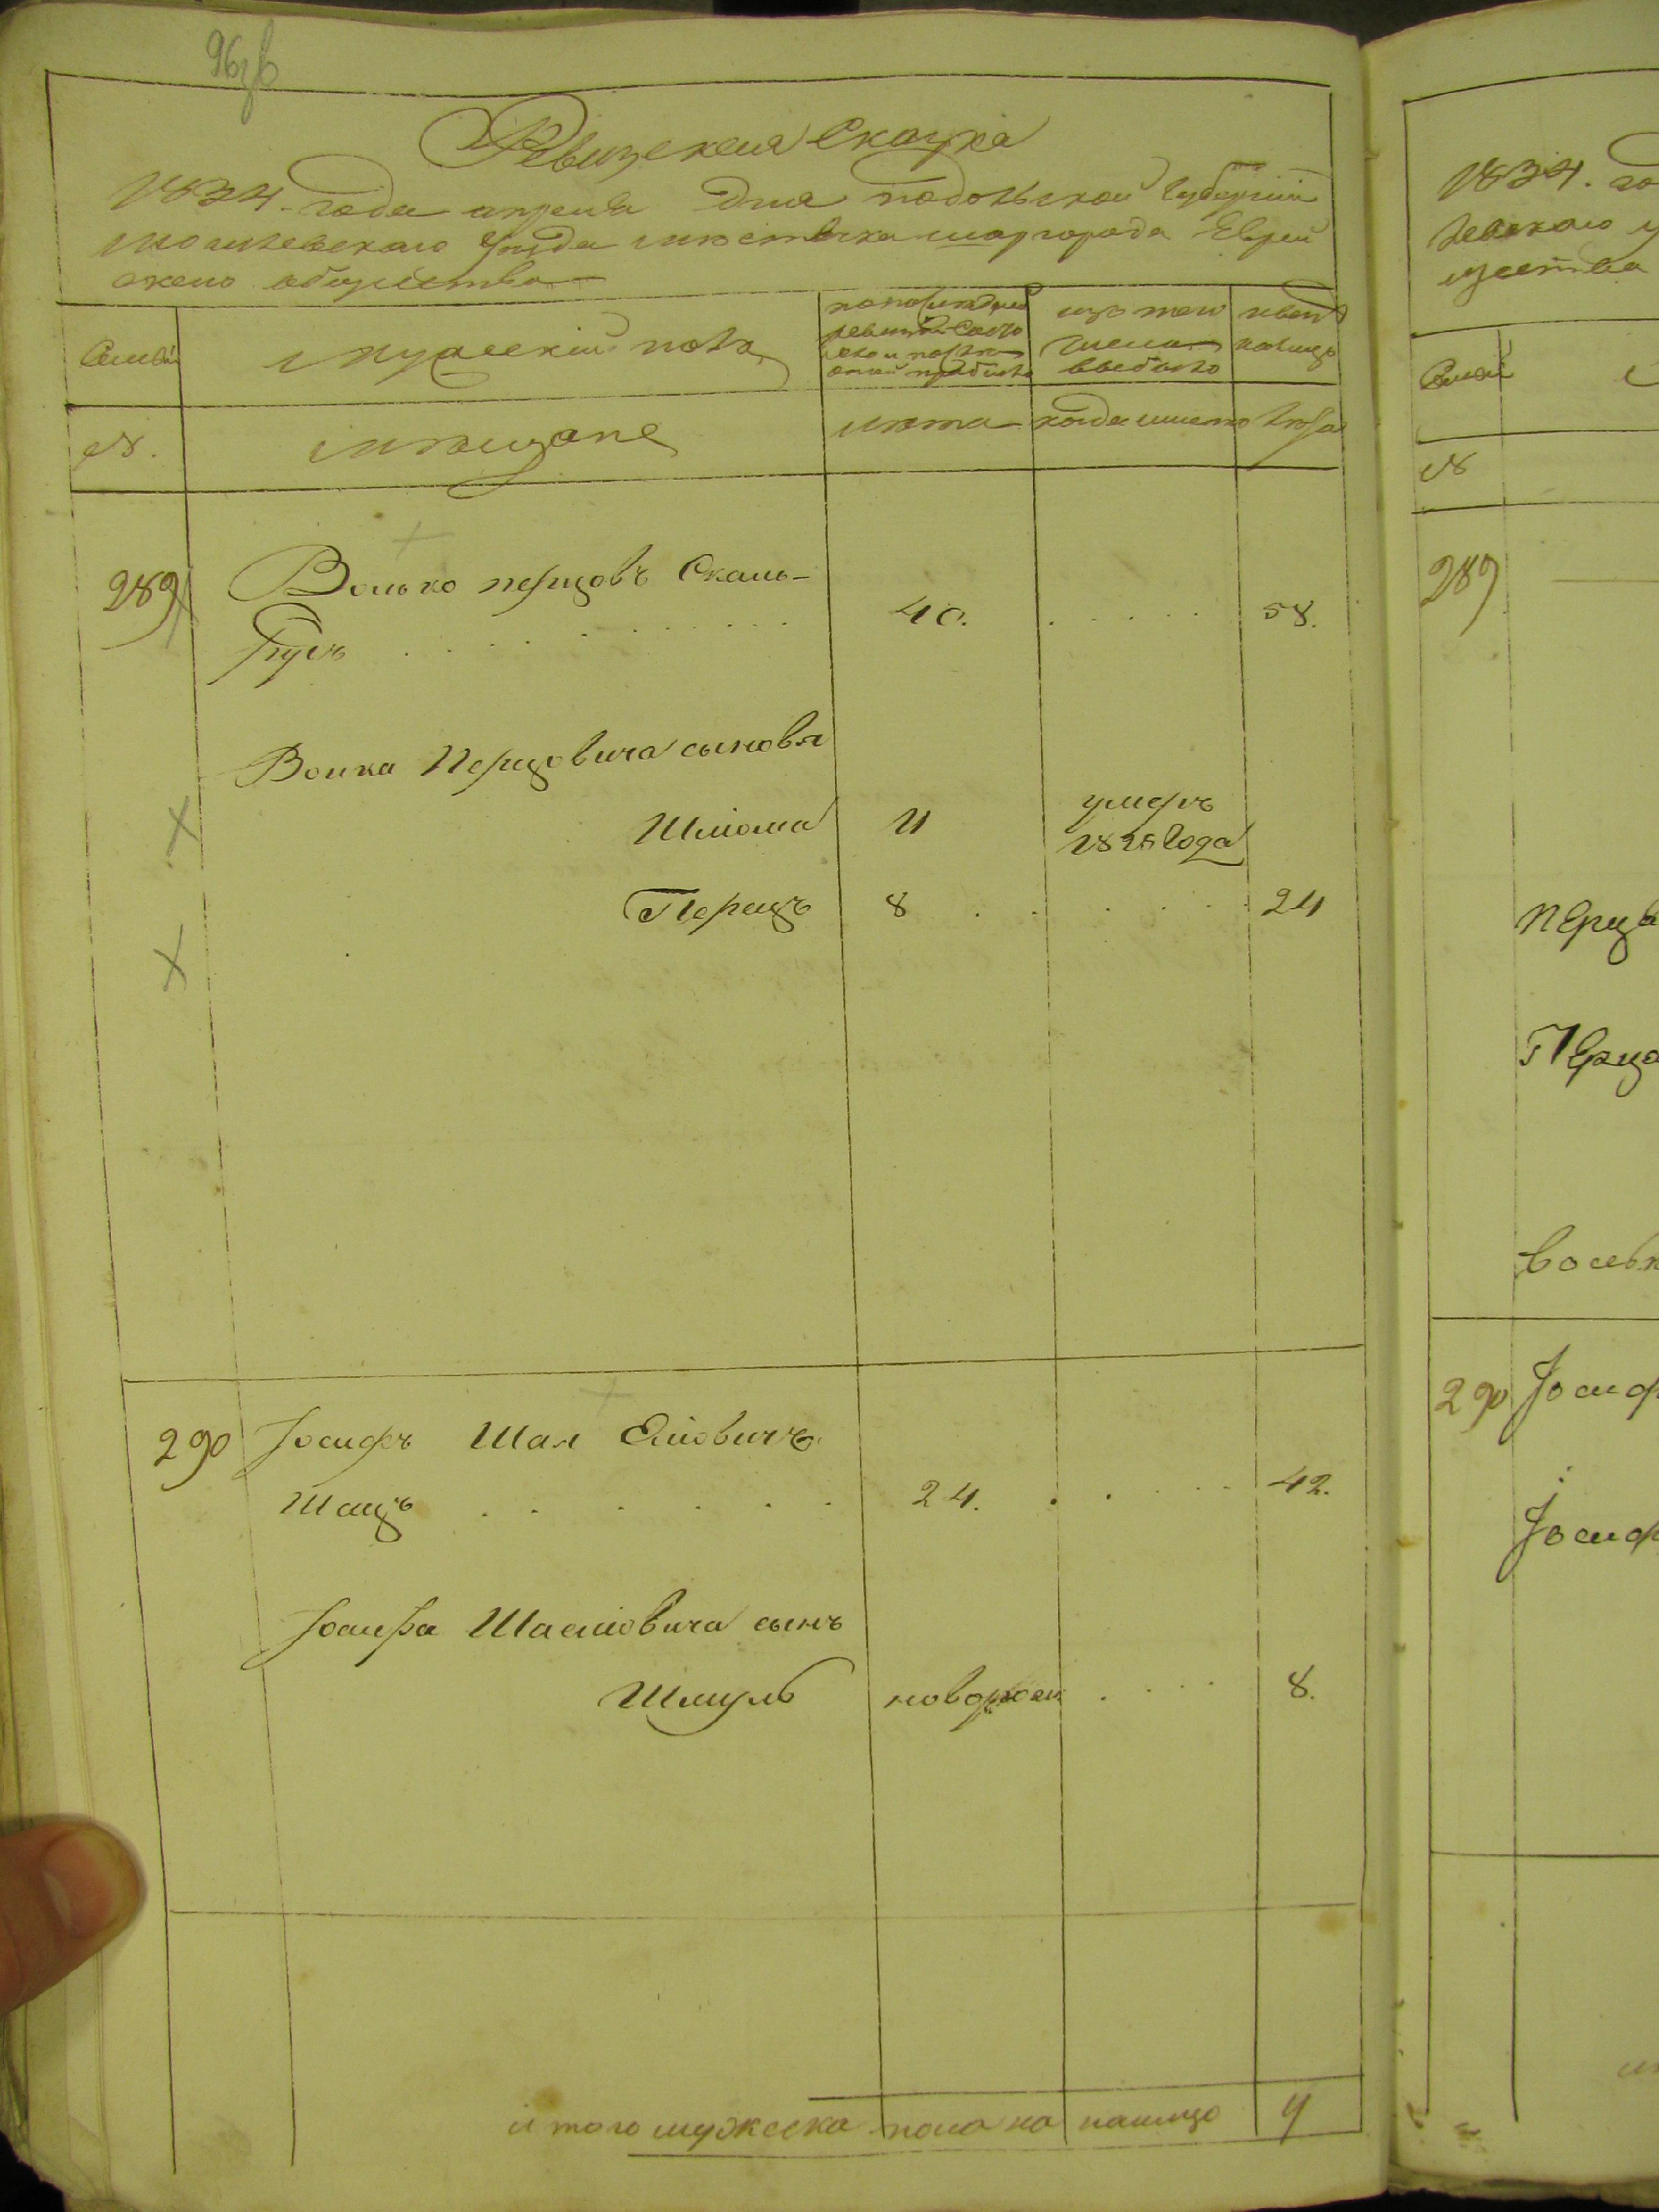 96 зв
Ревизская Сказка
1834. года апреля дня подольской Губернии
могилевского уезда местечка шаргорода Еврей
скаго общества
Семьи
мужеский полъ
по последней
ревизии состо
яло и после
оной прибыло
изъ того
числа
выбыло
ныне
налицо
№.
мещане
лета
когда именно
лета
289
Волько перцовъ Скаль-
Грусъ
40.
58.
Волка Перцовича сыновя
Шлиома
11
умеръ
1828 года
Перецъ
8
24
290
Іосифъ Шая Еліовичъ
Шацъ
24.
42.
Іосифа Шаеліовича сынъ
Шмуль
новорожд
8.
итого мужеска пола на налицо
4
1834. го
левскаго у
щества
Семьи
№
289
перца
Перца
вольк
290
Іосиф
Іосиф